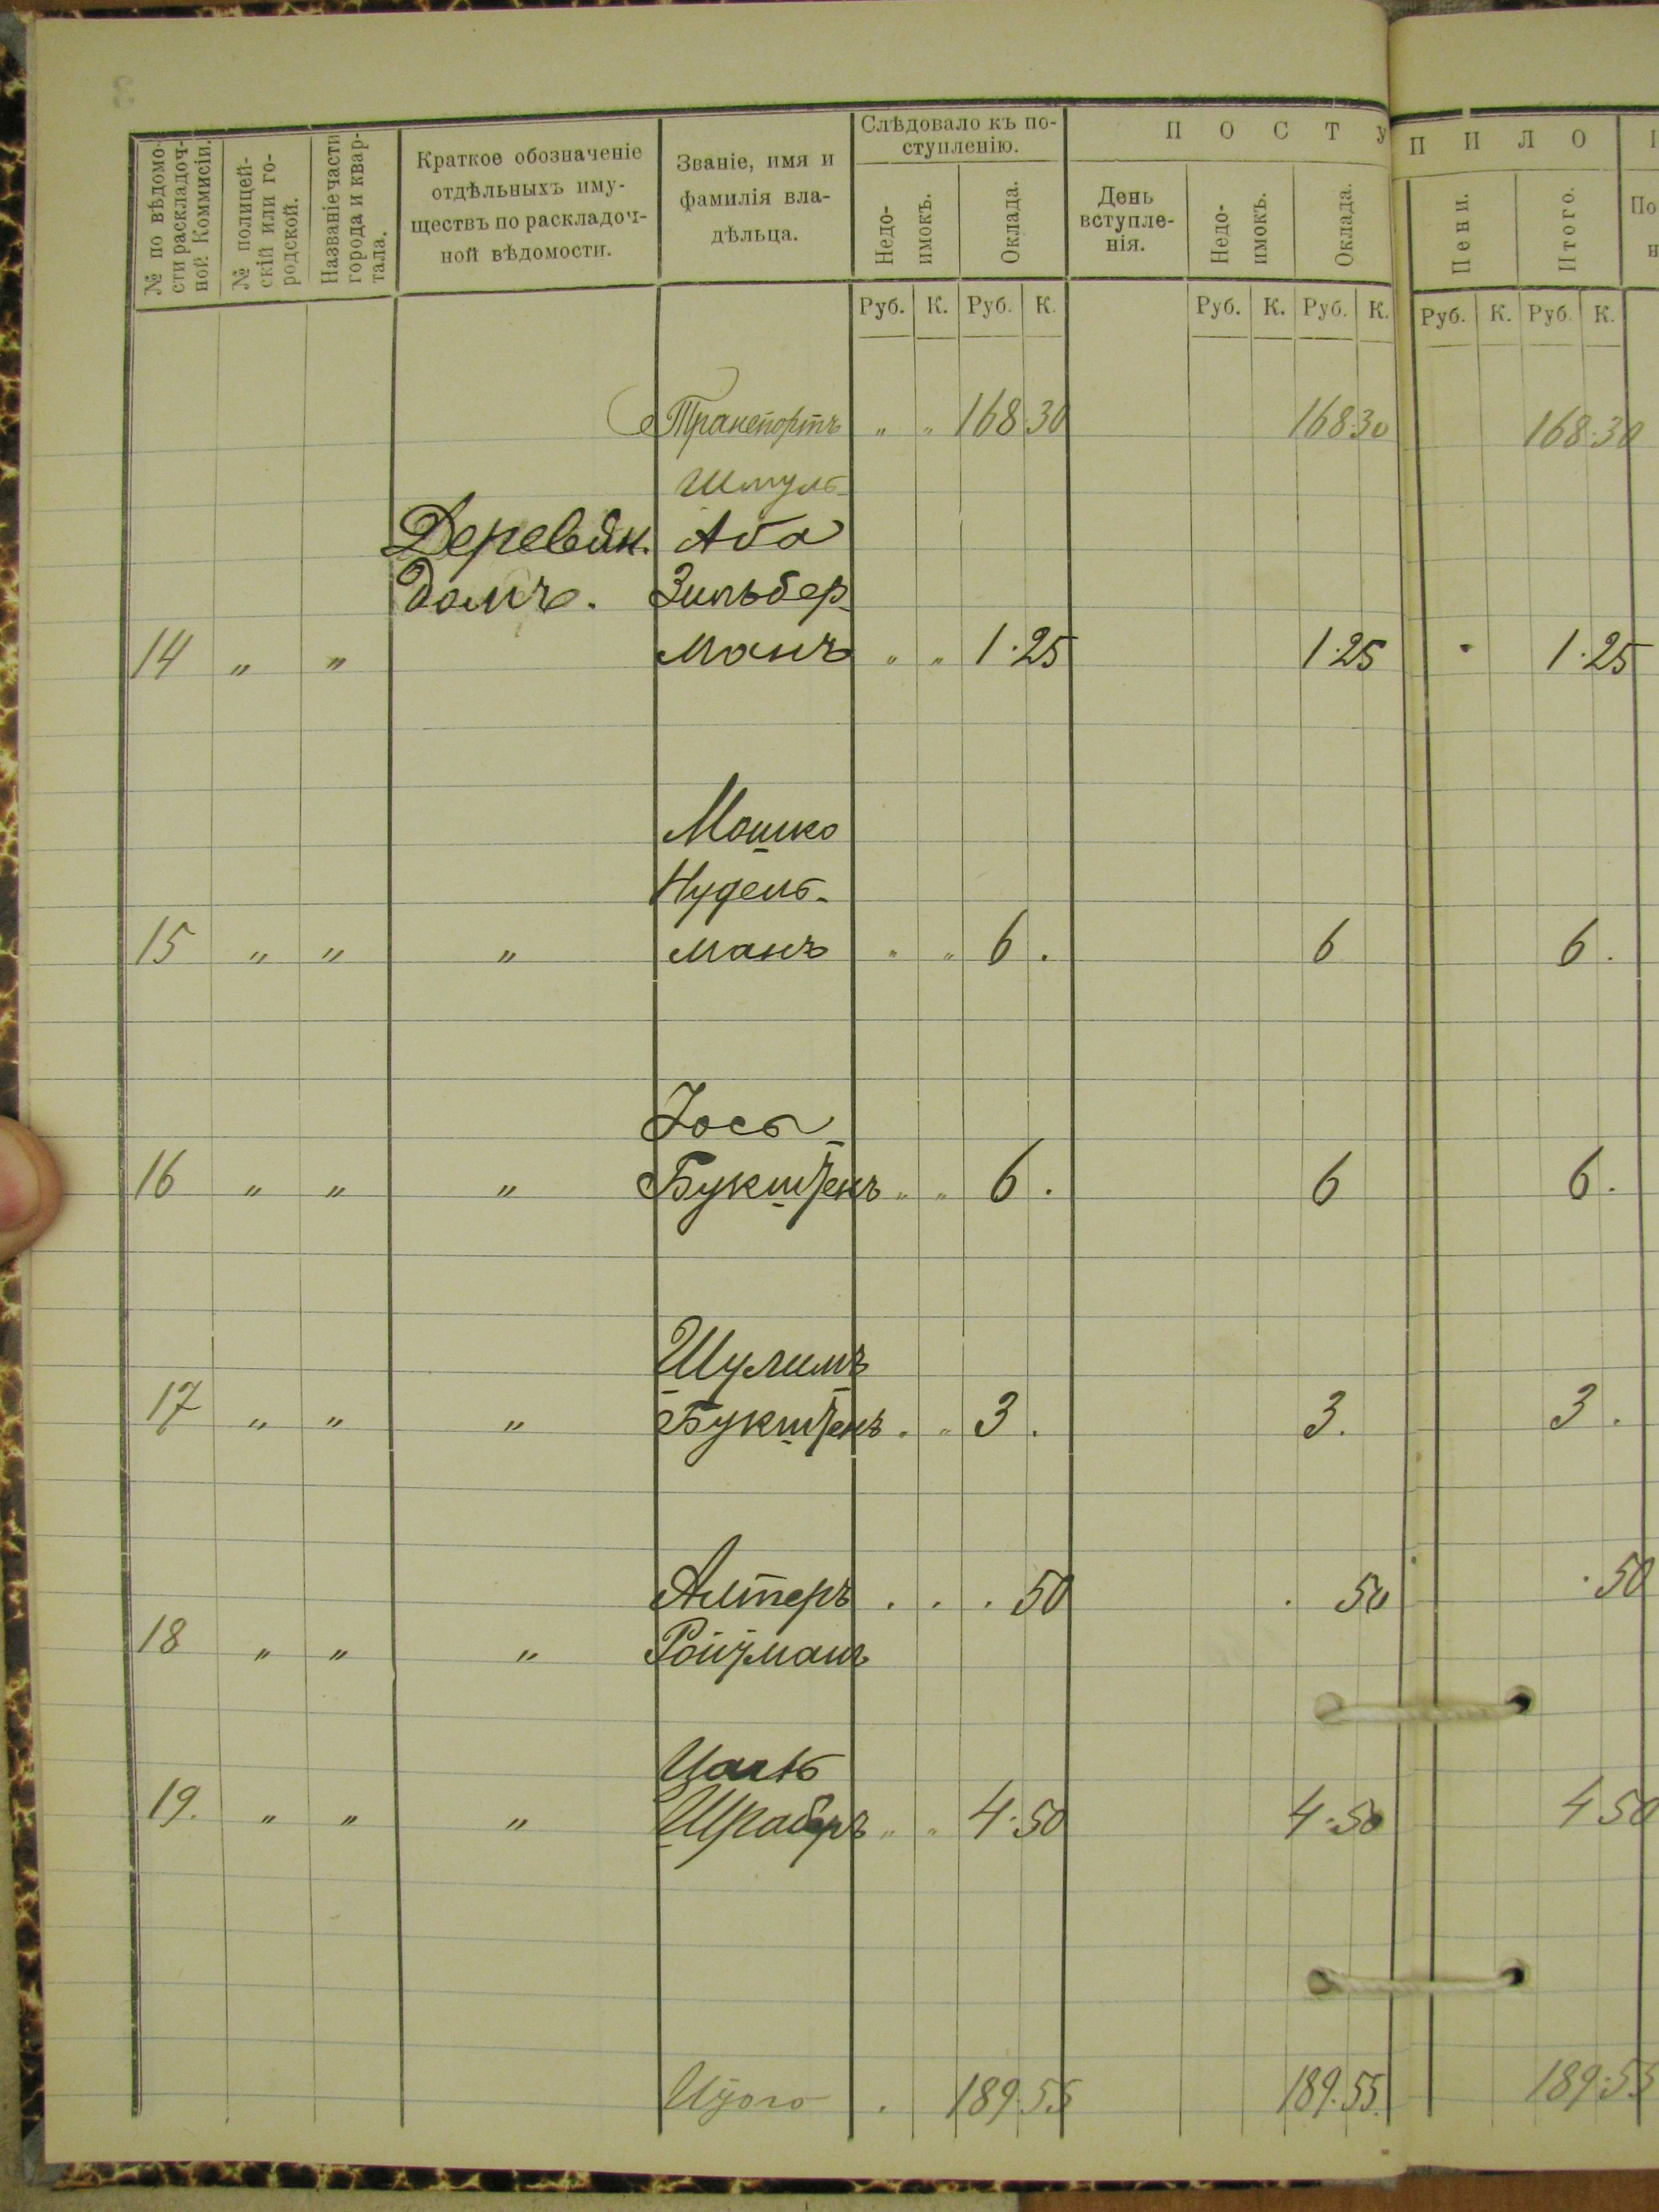 № по вѣдомо-
сти раскладоч-
ной Коммисіи.
№ полицей-
скій или го-
родской.
Названіе части
города и квар-
тала.
Краткое обозначеніе
отдѣльныхъ иму-
ществъ по раскладоч-
ной вѣдомости.
Званіе, имя и
фамилія вла-
дѣльца.
Слѣдовало къ по-
ступленію.
Недо-
имокъ.
Оклада.
П О С Т У П И Л О
День
вступле-
нія.
Недо-
имокъ.
Оклада.
Пени.
Итого.
По
Руб. К. Руб. К. Руб. К. Руб. К. Руб. К. Руб. К.
Транспортъ " " 168 30 168 30 168.30
Шмуль-
Деревян. Аба
Домъ. Зильбер
14 " " манъ " " 1.25 1.25 1.25
Мошко
Нудель-
15 " " " манъ " " 6. 6 6.
Іось
16 " " " Букштенъ " " 6. 6 6.
Шулимъ
17 " " " Букштенъ . " 3. 3. 3.
Алтеръ . . . 50 . 50 . 50
18 " " " Ройзманъ
19. " " " Шраберъ " " 4.50 4.50 4 50
Итого . 189.55 189.55. 189.55